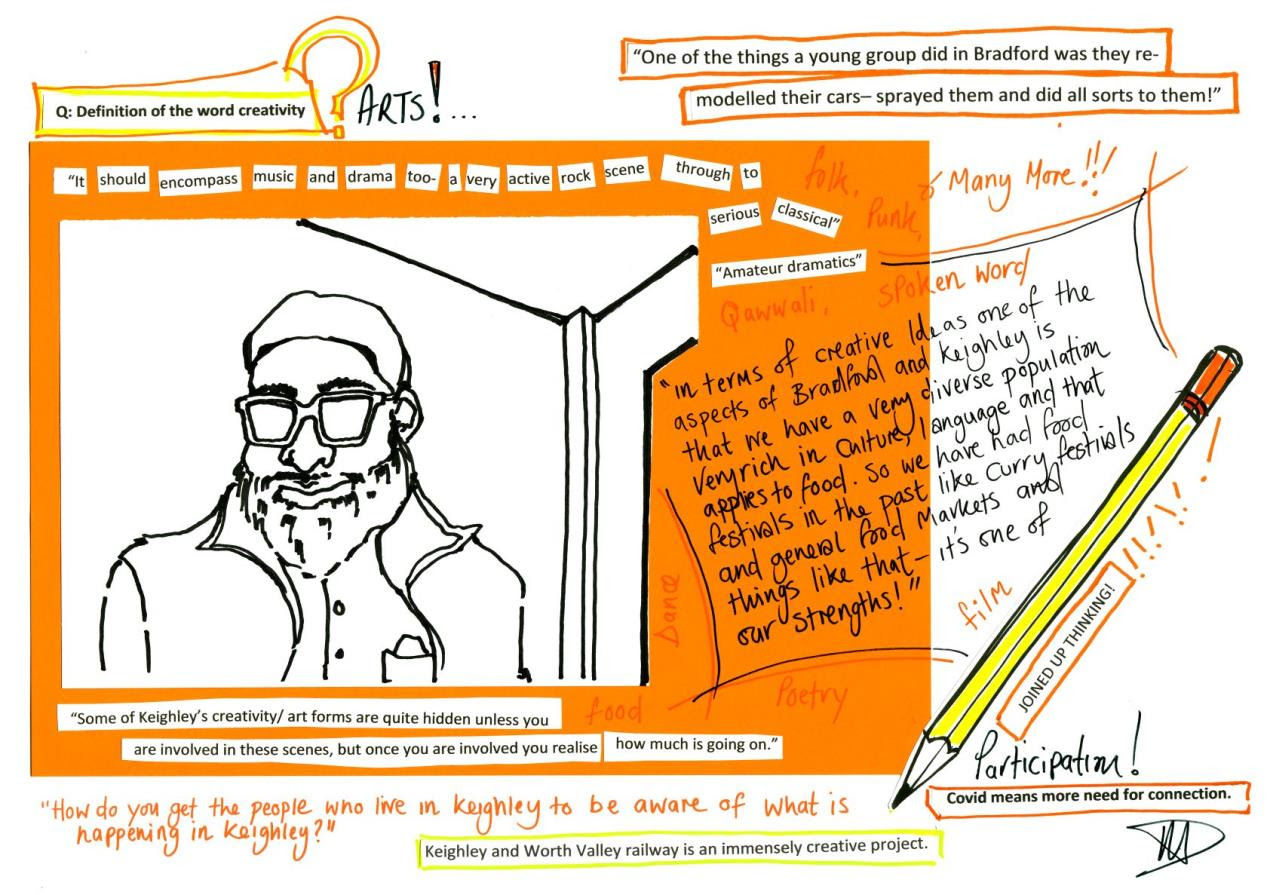 Q: Definition of the word creativity
?
ARTS!...
"One of the things a young group did in Bradford was they re-
modelled their cars– sprayed them and did all sorts to them!"
"It should encompass music and drama too- a very active rock scene through to
serious classical"
"Amateur dramatics"
folk,
Punk,
& Many More!!!
Qawwali,
spoken word
"in terms of creative Ideas one of the
aspects of Bradford and Keighley is
that we have a very diverse population
very rich in Culture, language and that
applies to food. So we have had food
festivals in the past like Curry festivals
and general food Markets and
things like that– it's one of
our strengths!"
Dance
film
food
Poetry
JOINED UP THINKING!
"Some of Keighley's creativity/ art forms are quite hidden unless you
are involved in these scenes, but once you are involved you realise how much is going on."
Participation!
Covid means more need for connection.
"How do you get the people who live in Keighley to be aware of what is
happening in Keighley?"
Keighley and Worth Valley railway is an immensely creative project.